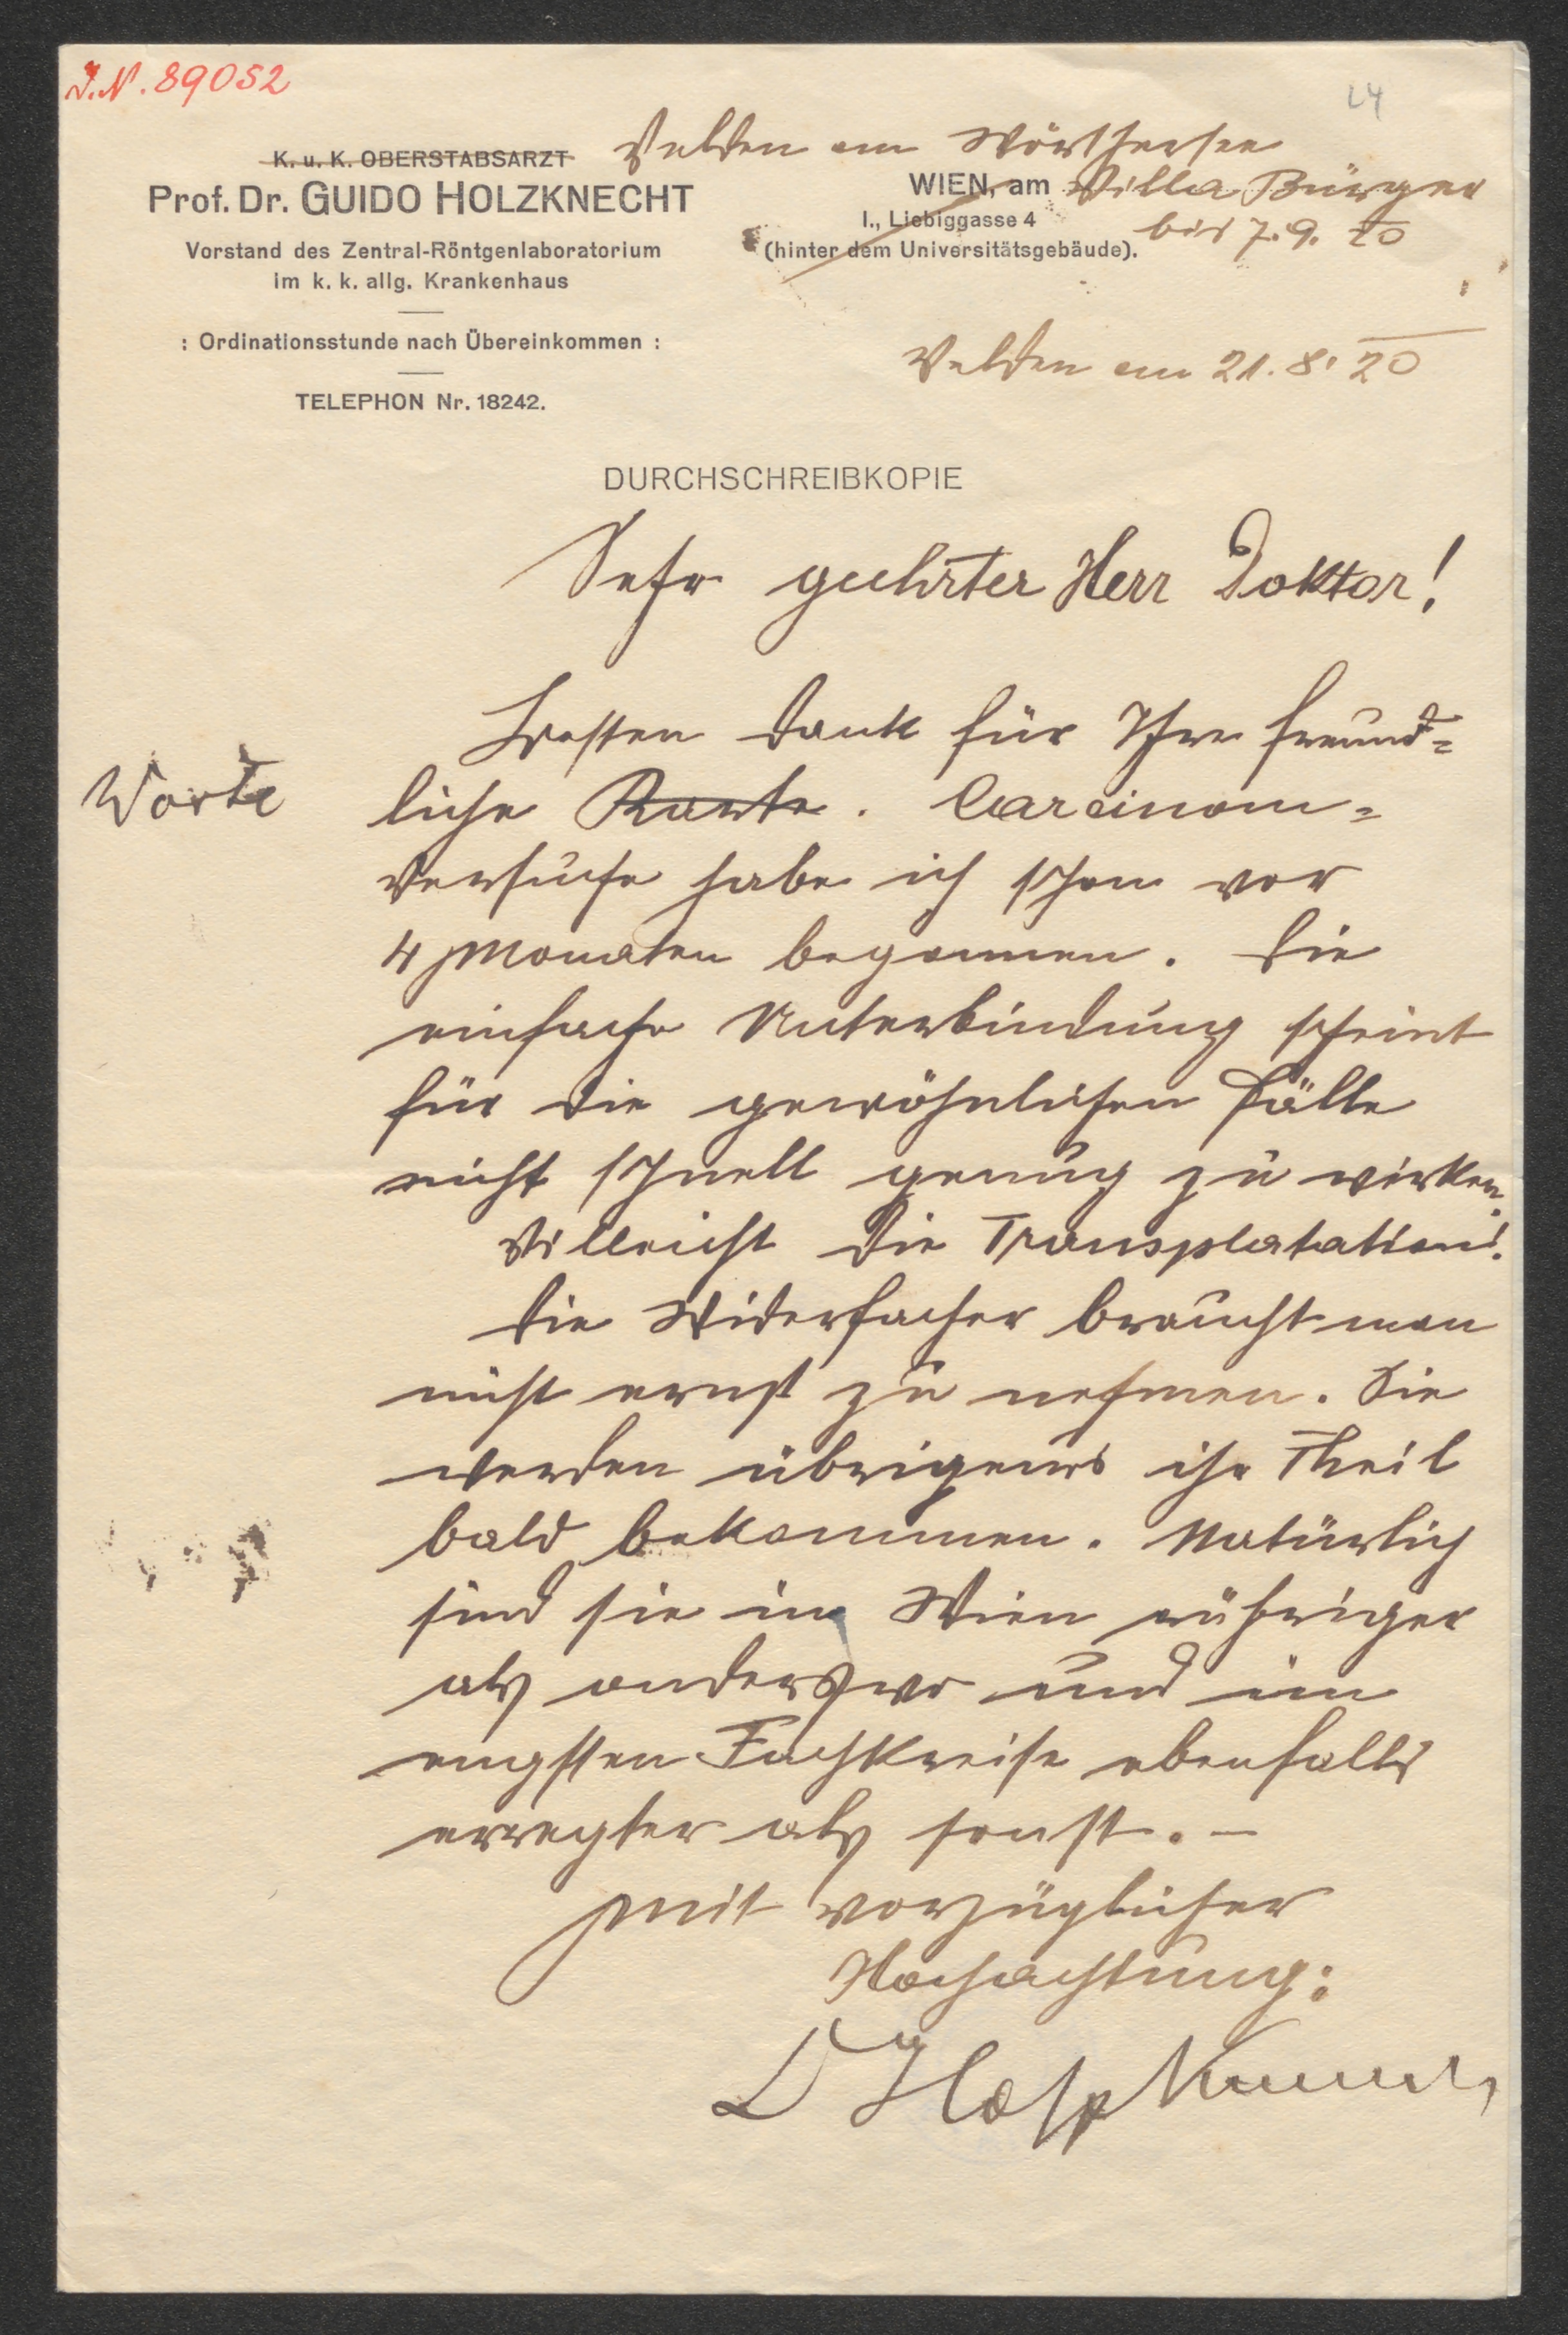 I.N. 89052
24
K. u. K. OBERSTABSARZT
Velden am Wörthersee
Prof. Dr. GUIDO HOLZKNECHT
WIEN, am Villa Bürger
I., Liebiggasse 4
bis 7.9. 20
Vorstand des Zentral-Röntgenlaboratorium
(hinter dem Universitätsgebäude).
im k. k. allg. Krankenhaus
: Ordinationsstunde nach Übereinkommen :
Velden am 21.8.20
TELEPHON Nr. 18242.
DURCHSCHREIBKOPIE
Sehr geehrter Herr Doktor!
Besten Dank für Ihre freund=
Worte
liche Karte. Carcinom=
versuche habe ich schon vor
4 Monaten begonnen. Die
einfache Unterbindung scheint
für die gewöhnlichen Fälle
nicht schnell genug zu wirken.
Villeicht die Transplatation!
Die Widersacher braucht man
nicht ernst zu nehmen. Sie
werden übrigens ihr Theil
bald bekommen. Natürlich
sind sie in Wien rühriger
als anderswo und im
engsten Fachkreise ebenfalls
erregter als sonst. –
Mit vorzüglicher
Hochachtung:
D Holzknecht